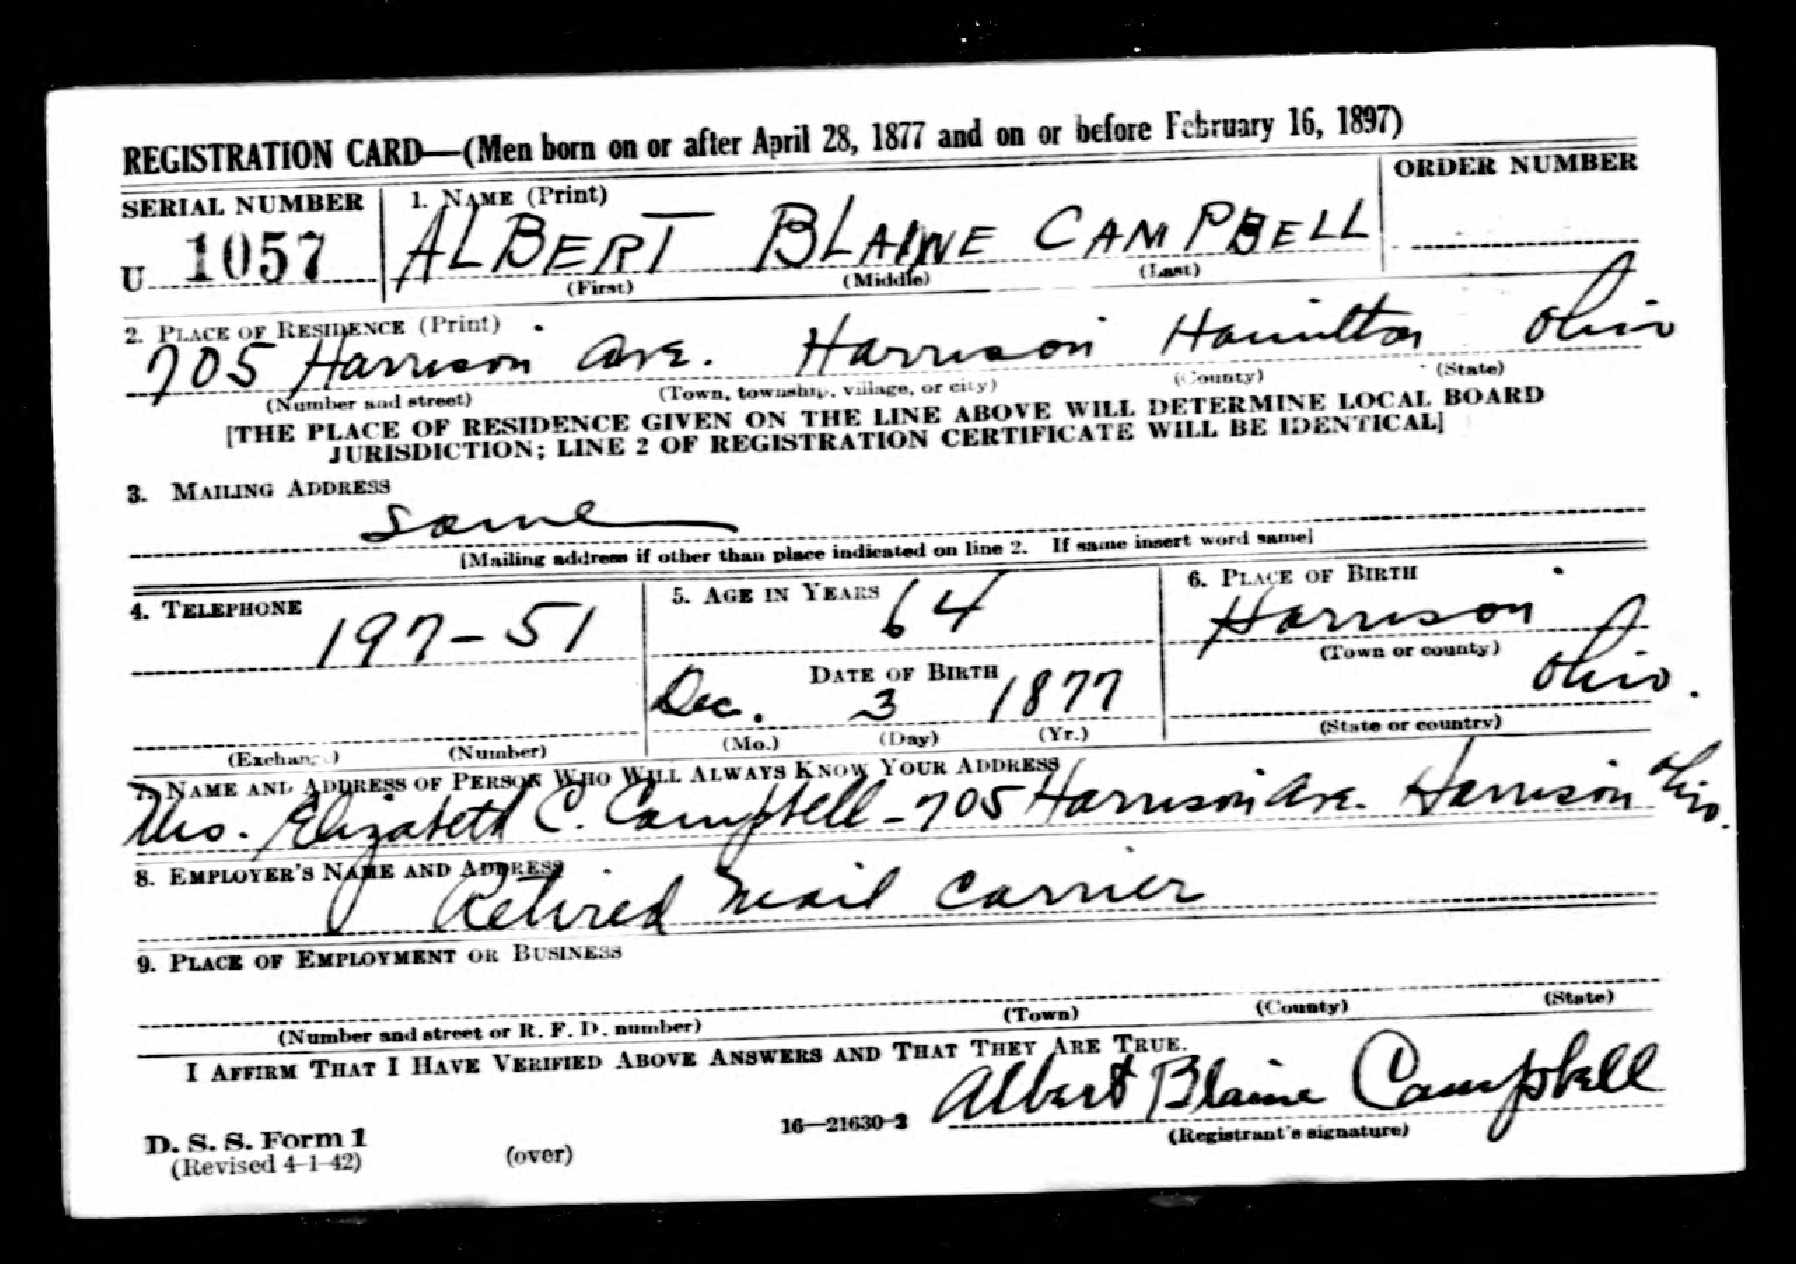 REGISTRATION CARD—(Men born on or after April 28, 1877 and on or before February 16, 1897)
SERIAL NUMBER
1. NAME (Print)
ORDER NUMBER
U 1057
ALBERT BLAINE CAMPBELL
(First) (Middle) (Last)
2. PLACE OF RESIDENCE (Print)
705 Harrison Ave. Harrison Hamilton Ohio
(Number and street) (Town, township, village, or city) (County) (State)
[THE PLACE OF RESIDENCE GIVEN ON THE LINE ABOVE WILL DETERMINE LOCAL BOARD
JURISDICTION; LINE 2 OF REGISTRATION CERTIFICATE WILL BE IDENTICAL]
3. MAILING ADDRESS
Same
[Mailing address if other than place indicated on line 2. If same insert word same]
4. TELEPHONE
197-51
(Exchange) (Number)
5. AGE IN YEARS
64
DATE OF BIRTH
Dec. 3 1877
(Mo.) (Day) (Yr.)
6. PLACE OF BIRTH
Harrison
(Town or county)
Ohio.
(State or country)
7. NAME AND ADDRESS OF PERSON WHO WILL ALWAYS KNOW YOUR ADDRESS
Mrs. Elizabeth C. Campbell - 705 Harrison Ave. Harrison Ohio.
8. EMPLOYER'S NAME AND ADDRESS
Retired Mail Carrier
9. PLACE OF EMPLOYMENT OR BUSINESS
(Number and street or R. F. D. number) (Town) (County) (State)
I AFFIRM THAT I HAVE VERIFIED ABOVE ANSWERS AND THAT THEY ARE TRUE.
Albert Blaine Campbell
D. S. S. Form 1
16—21630-2
(Registrant's signature)
(Revised 4-1-42)
(over)